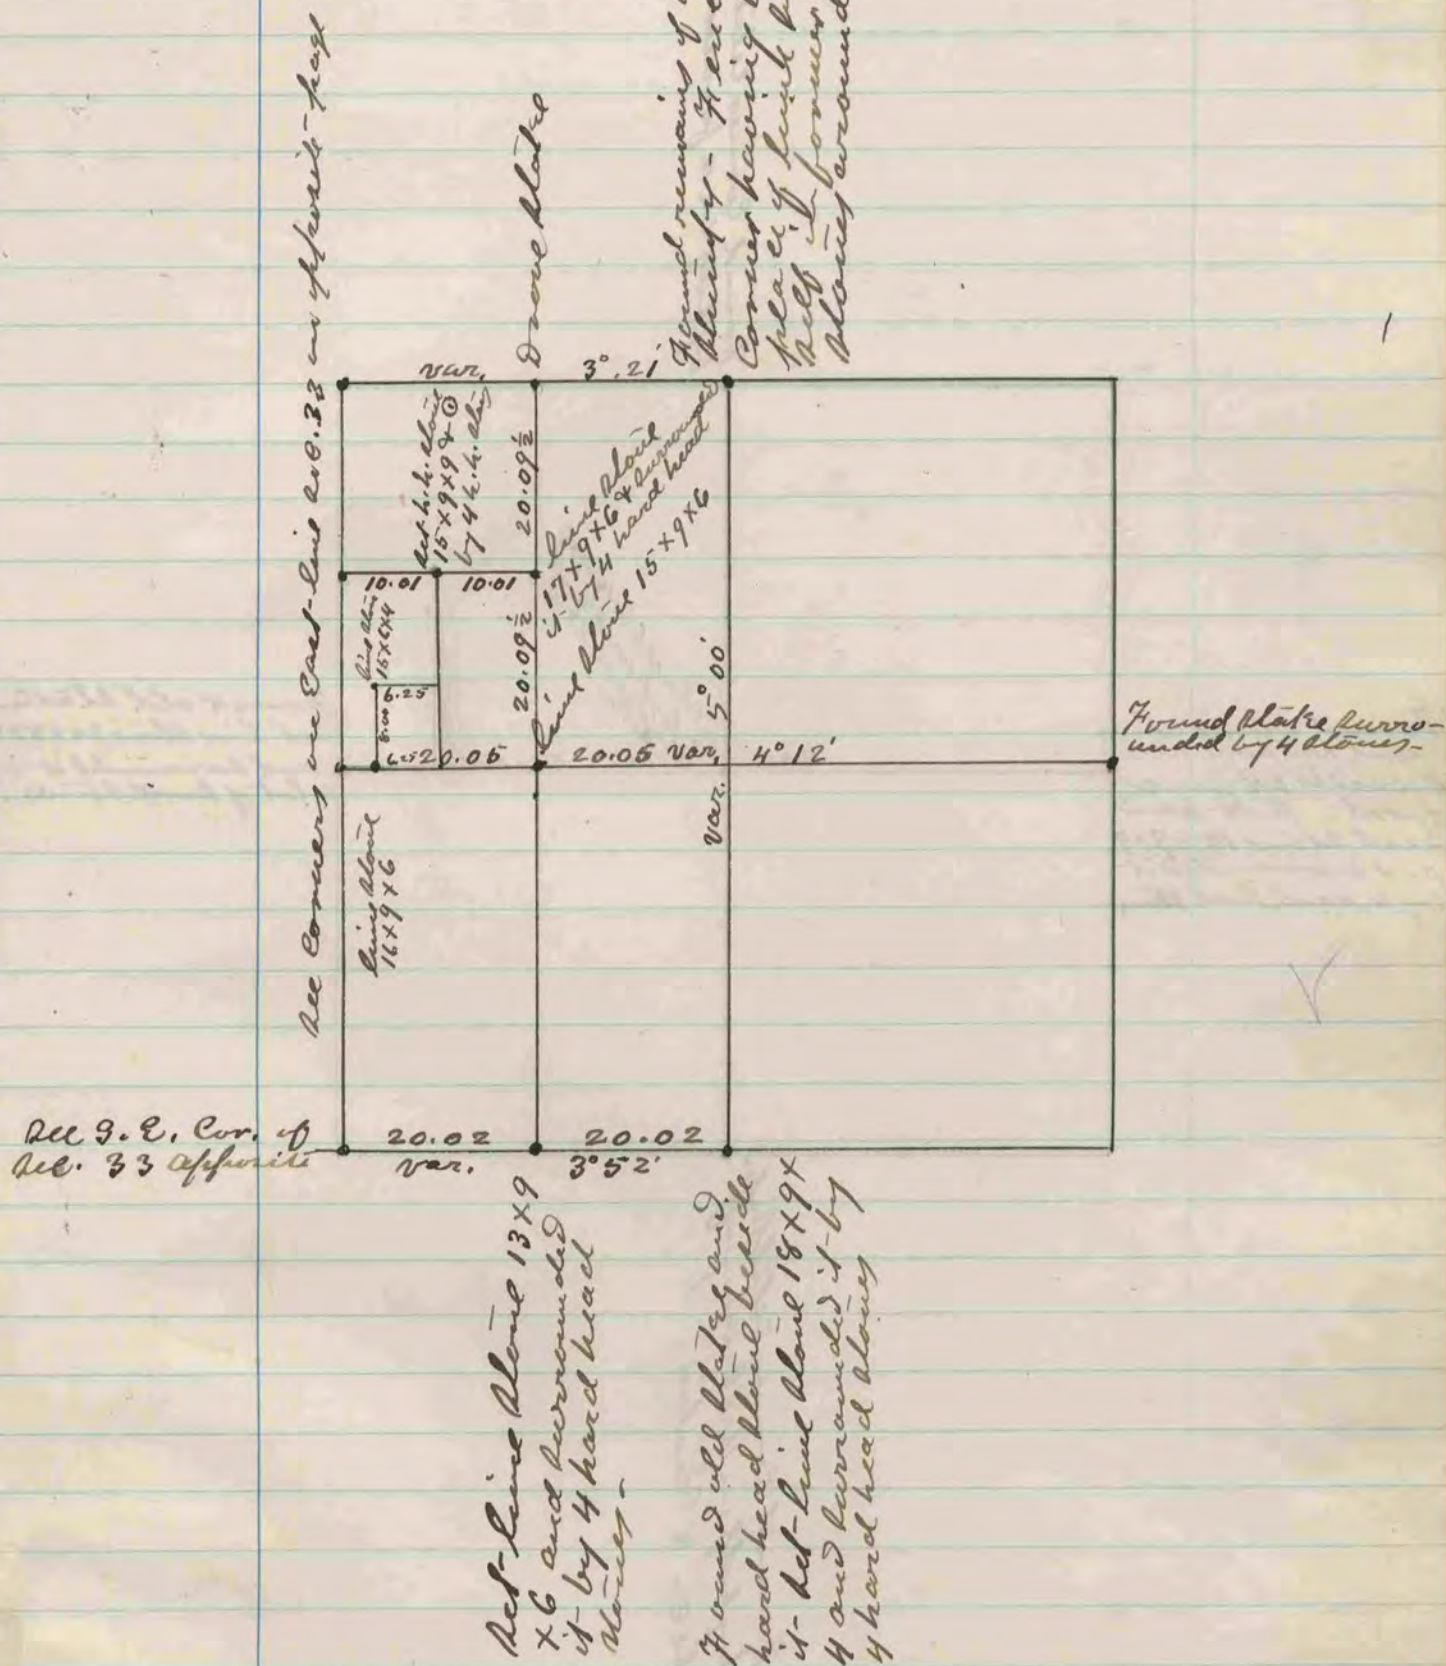 See Corners on East-line Sec. 33 on opposite-page
Drove Stake
Found remains of
Stump -
Corner having
place of
self in former
stones around
var. 3°.21'
Set h.h. stone
15x9x9 &
by 4 h.h. stones
20.09½
lime stone
17x9x6 & surrounded
it by 4 hard head
lime stone 15x9x6
10.01 10.01
lime stone
15x6x4
20.09½
6.25
8.00
6.25 20.05 20.05 var. 4°12'
var. 5°00'
Found Stake surro-
unded by 4 stones-
lime stone
16x9x6
See S.E. Cor. of
Sec. 33 opposite
20.02 20.02
var. 3°52'
Set-lime stone 13x9
x6 and surrounded
it-by 4 hard head
stones-
Found old stake and
hard head stone beside
it-set-lime stone 18x9x
4 and surrounded it-by
4 hard head stones